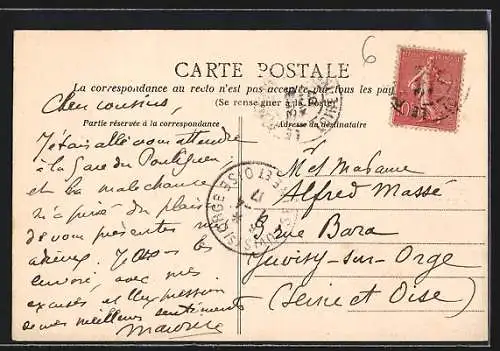 6
CARTE POSTALE
La correspondance au recto n'est pas acceptée par tous les pays
(Se renseigner à la Poste)
Partie réservée à la correspondance
Adresse du destinataire
Chers cousins,
J'étais allé vous attendre
à la Gare du Pouliguen
et la malchance
m'a privé du plaisir
de vous présenter mes
adieux. Je vous les
envoie, avec mes
excuses, et l'expression
de mes meilleurs sentiments
Maurice
M et Madame
Alfred Massé
3 rue Bara
Juvisy-sur-Orge
(Seine et Oise)
JUVISY-S-ORGE SEINE ET OISE
17
10